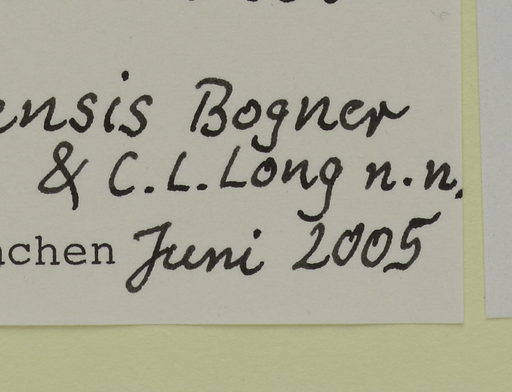 ensis Bogner
& C.L.Long n.n.
chen Juni 2005